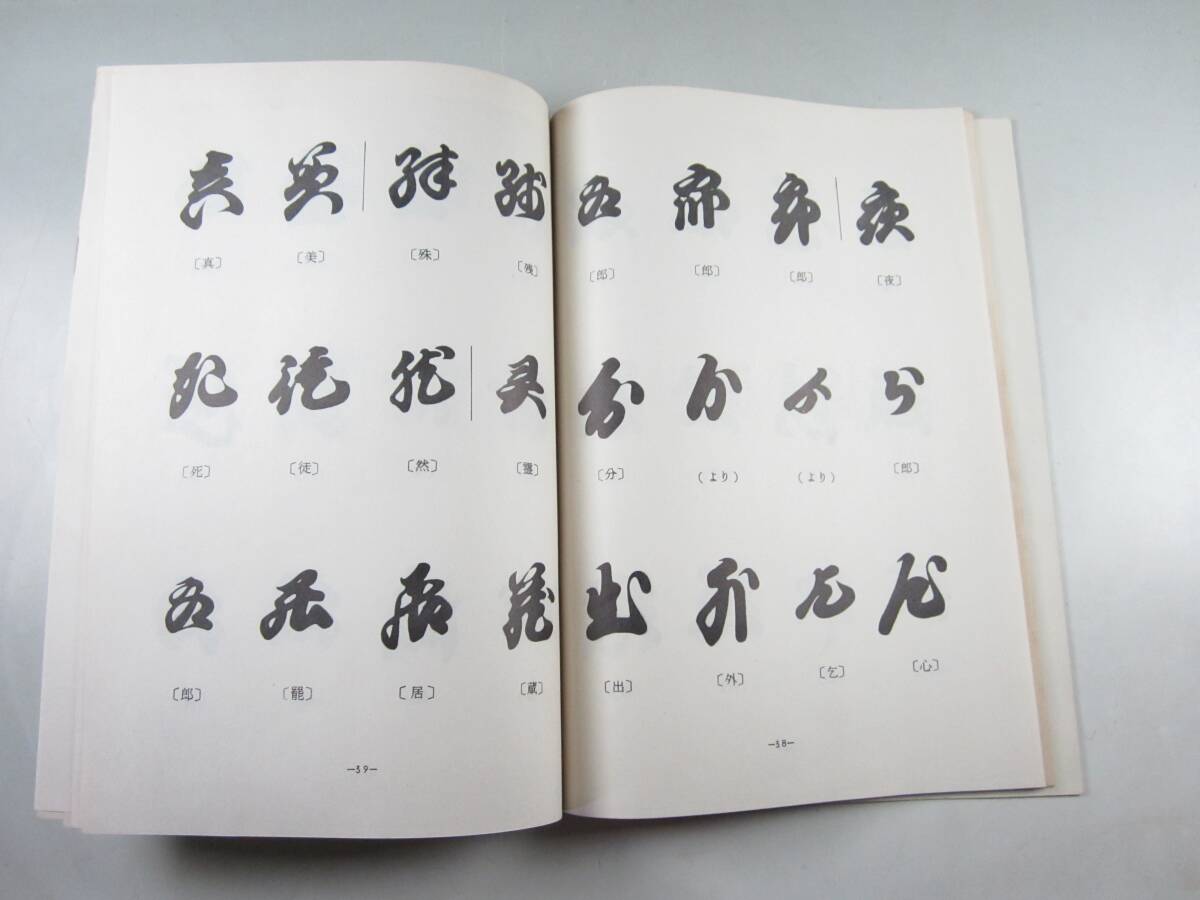 〔夜〕
〔郎〕
〔郎〕
〔郎〕
〔郎〕
(より)
(より)
〔分〕
〔心〕
〔乞〕
〔外〕
〔出〕
—38—
〔残〕
〔殊〕
〔美〕
〔真〕
〔然〕
〔徒〕
〔死〕
〔蔵〕
〔居〕
〔罷〕
〔郎〕
—39—